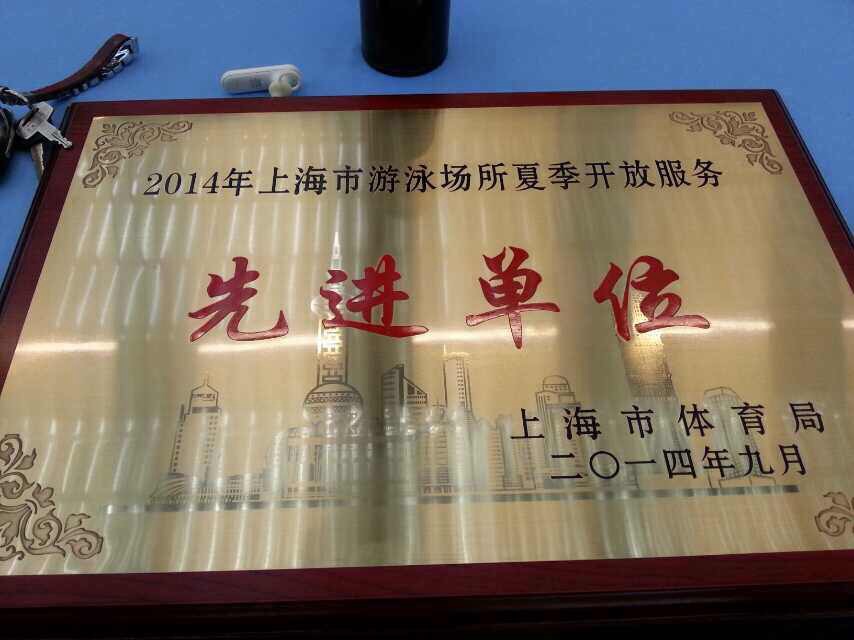 2014年上海市游泳场所夏季开放服务
先进单位
上海市体育局
二〇一四年九月